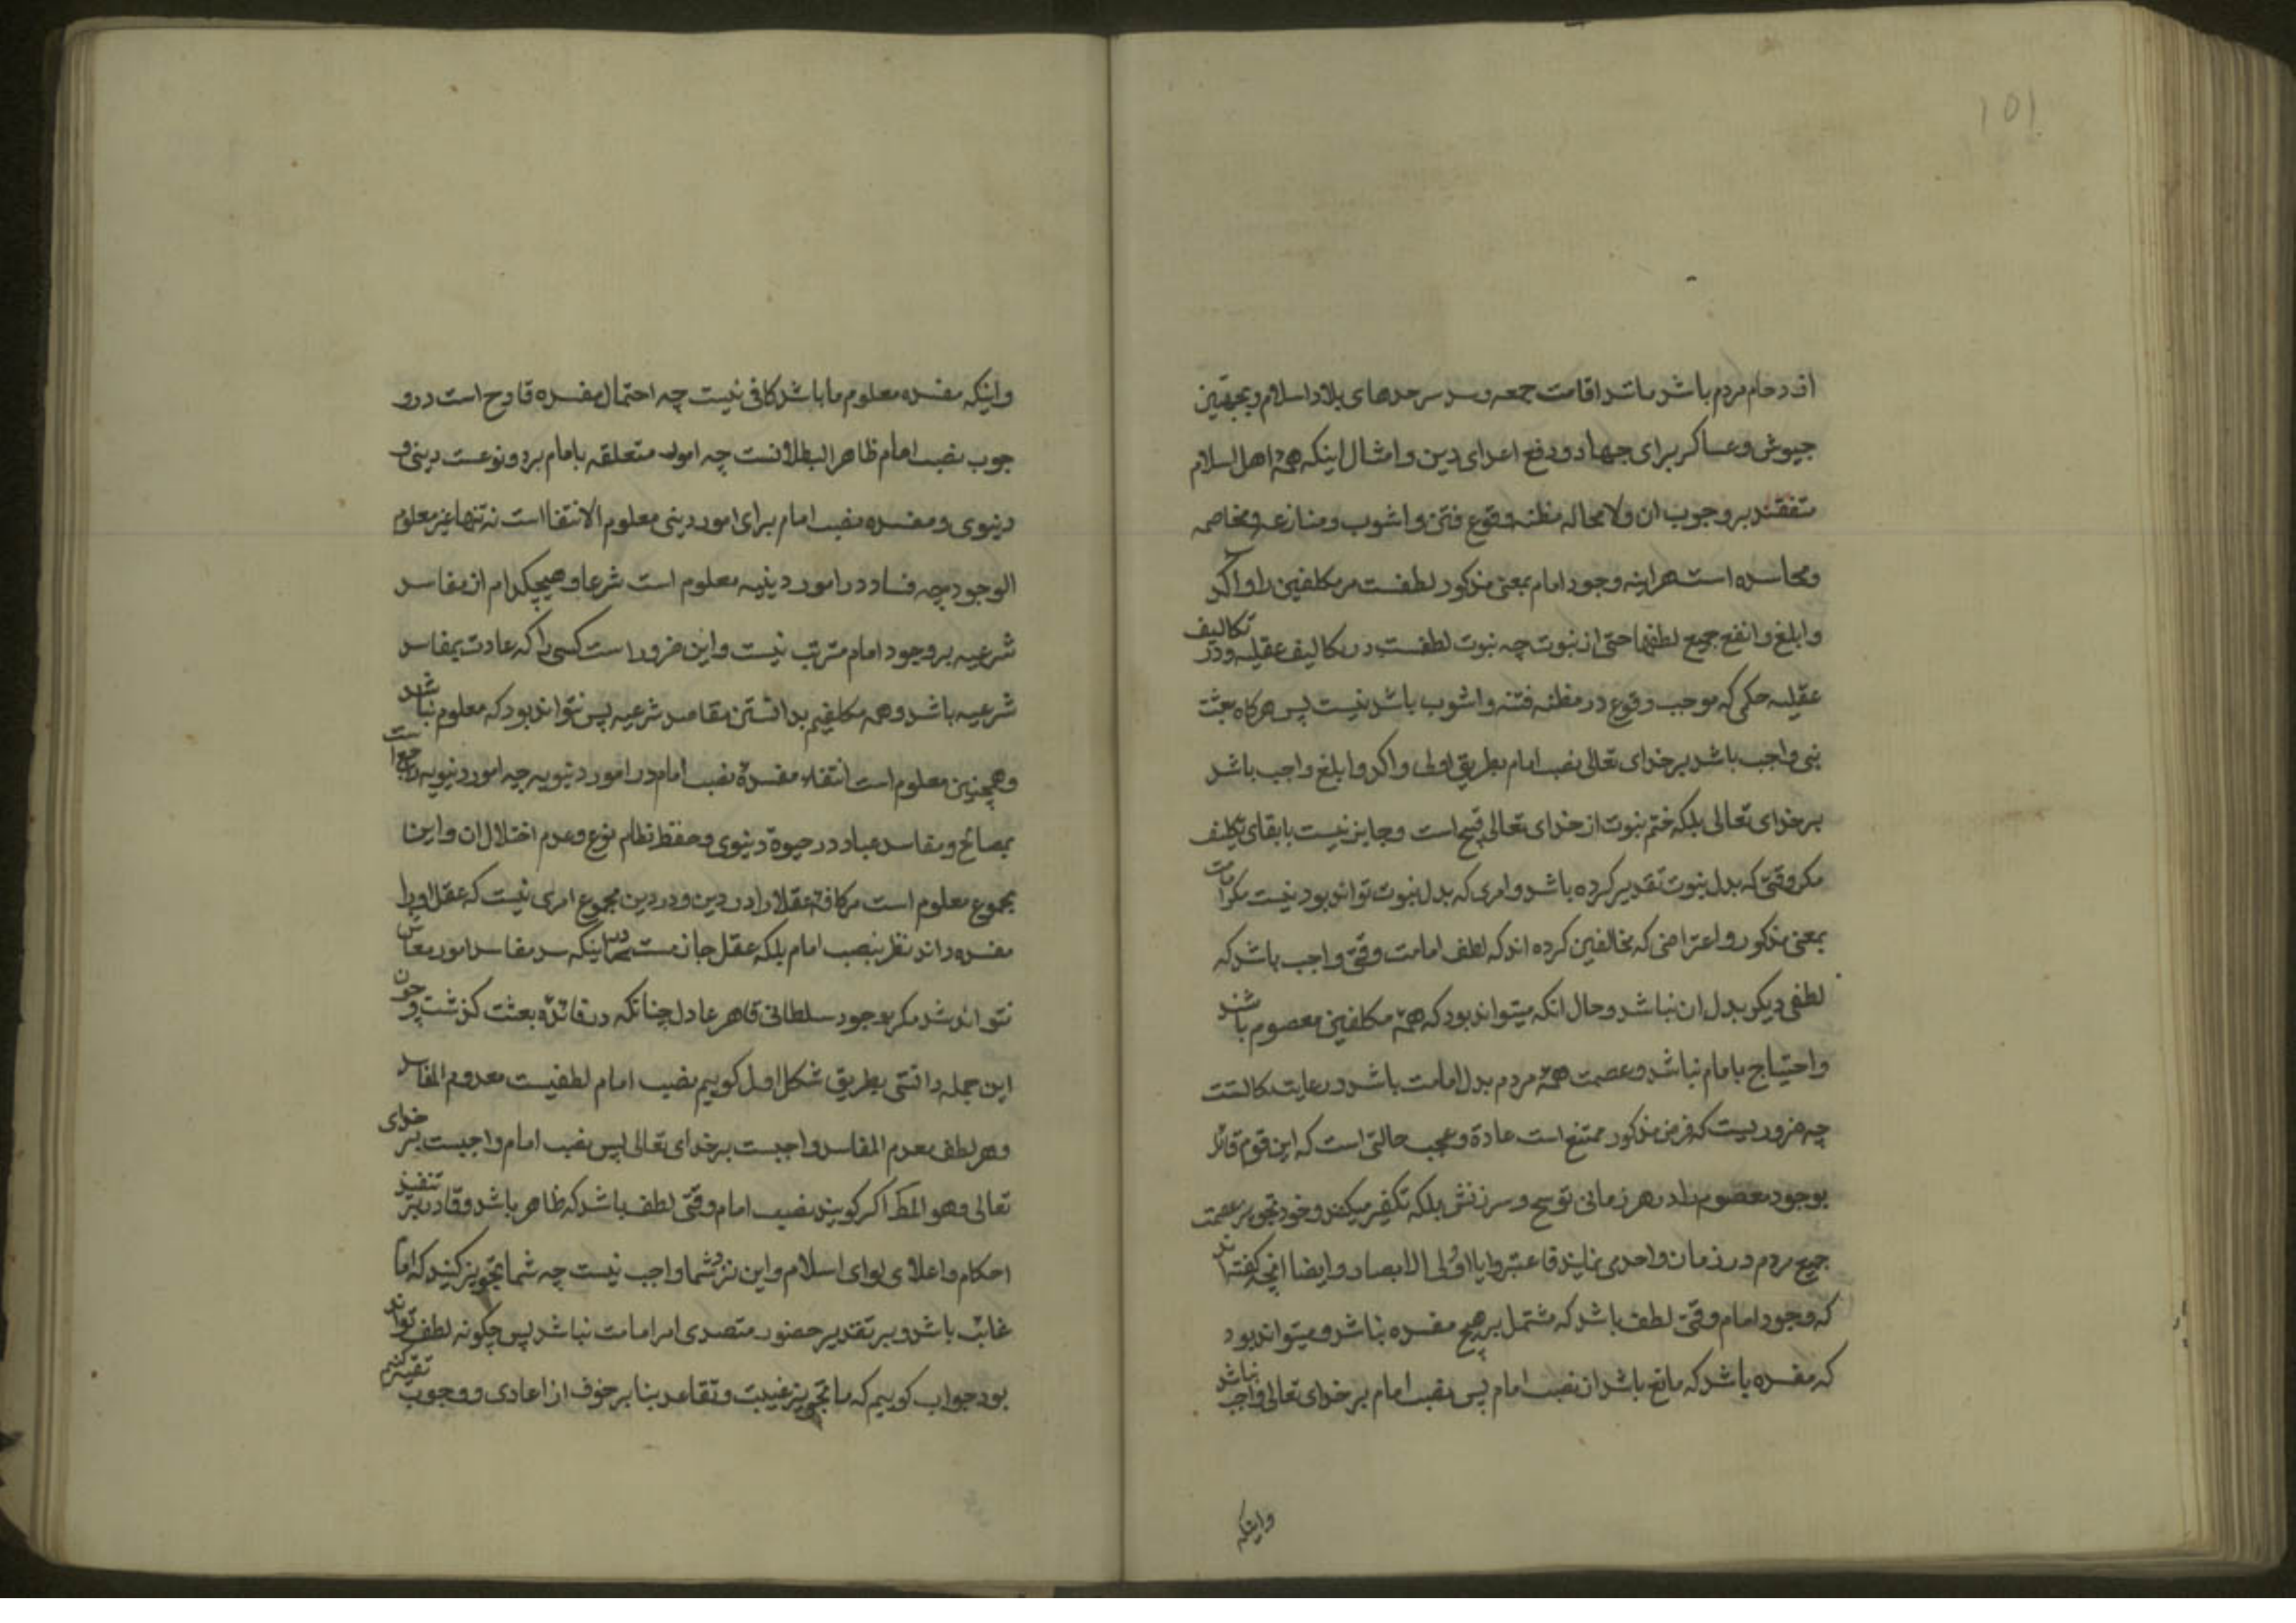 ۱۵۱
ازدحام مردم باشد مانند اقامت جمعه و سد سرحدهای بلاد اسلام و تجهیز
جیوش و عساکر برای جهاد و دفع اعدای دین و امثال اینکه همهٔ اهل اسلام
متفقند بر وجوب ان ولا محاله مظنه وقوع فتن و اشوب و منازعه و مخاصمه
و محاسده است هراینه وجود امام بمعنی مذکور لطفست مر مکلفین را و اکد
و ابلغ و انفع جمیع لطفها حتی از نبوت چه نبوت لطفست در تکالیف عقلیه و در تکالیف
عقلیه حکمی که موجب وقوع در مظنه فتنه و اشوب باشد نیست پس هرکاه بعثت
نبی واجب باشد بر خدای تعالی نصب امام بطریق اولی و اکد و ابلغ واجب باشد
بر خدای تعالی بلکه ختم نبوت از خدای تعالی قبیح است و جایز نیست با بقای تکلیف
مکر وقتی که بدل نبوت تقدیر کرده باشد و امری که بدل نبوت تواند بود نیست مکر امامت
بمعنی مذکور و اعتراضی که مخالفین کرده اند که لطف امامت وقتی واجب باشد که
لطفی دیکر بدل ان نباشد و حال انکه میتواند بود که همهٔ مکلفین معصوم باشند
و احتیاج بامام نباشد و عصمت همهٔ مردم بدل امامت باشد در غایت رکاکتست
چه ضروریست که فرض مذکور ممتنع است عادة و عجب حالتی است که این قوم قائل
بوجود معصوم را در هر زمانی توبیخ و سرزنش بلکه تکفیر میکنند و خود تجویز عصمت
جمیع مردم در زمان واحد می نمایند فاعتبروا یا اولی الابصار و ایضا انچه کفته اند
که وجود امام وقتی لطف باشد که مشتمل بر هیچ مفسده نباشد و میتواند بود
که مفسده باشد که مانع باشد از نصب امام پس نصب امام بر خدای تعالی واجب نباشد
واینکه
واینکه مفسده معلوم ما باشد کافی نیست چه احتمال مفسده قادح است در و
جوب نصب امام ظاهر البطلانست چه امور متعلقه بامام بر دو نوعست دینی و
دنیوی و مفسده نصب امام برای امور دینی معلوم الانتفا است نه تنها غیر معلوم
الوجود چه فساد در امور دینیه معلوم است شرعا و هیچکدام از مفاسد
شرعیه بر وجود امام مترتب نیست و این ضرور است کسی را که عادت بمفاسد
شرعیه باشد و همه مکلفیم بدانستن مفاسد شرعیه پس نتواند بود که معلوم نباشد
و همچنین معلوم است انتفاء مفسدهٔ نصب امام در امور دنیویه چه امور دنیویه راجع است
بمصالح و مفاسد عباد در حیوة دنیوی و حفظ نظام نوع و عدم اختلال ان و اینا
بمجموع معلوم است مر کافهٔ عقلا را در دین و در دین مجموع امری نیست که عقل او را
مفسده داند نظر بنصب امام بلکه عقل جازمست در اینکه سد مفاسد امور معاش
نتواند شد مکر بوجود سلطانی قاهر عادل چنانکه در فائدهٔ بعثت کذشت و چون
این جمله دانستی بطریق شکل اول کوییم نصب امام لطفیست معدوم المفاسد
و هر لطف معدوم المفاسد واجبست بر خدای تعالی پس نصب امام واجبست بر خدای
تعالی وهو المط اکر کویند نصب امام وقتی لطف باشد که ظاهر باشد و قادر بر تنفیذ
احکام و اعلای لوای اسلام و این نزد شما واجب نیست چه شما تجویز کنید که امام
غائب باشد و بر تقدیر حضور متصدی امر امامت نباشد پس چکونه لطف تواند
بود جواب کوییم که ما تجویز غیبت و تقاعد بنا بر خوف از اعادی و وجوب تقیه کنیم